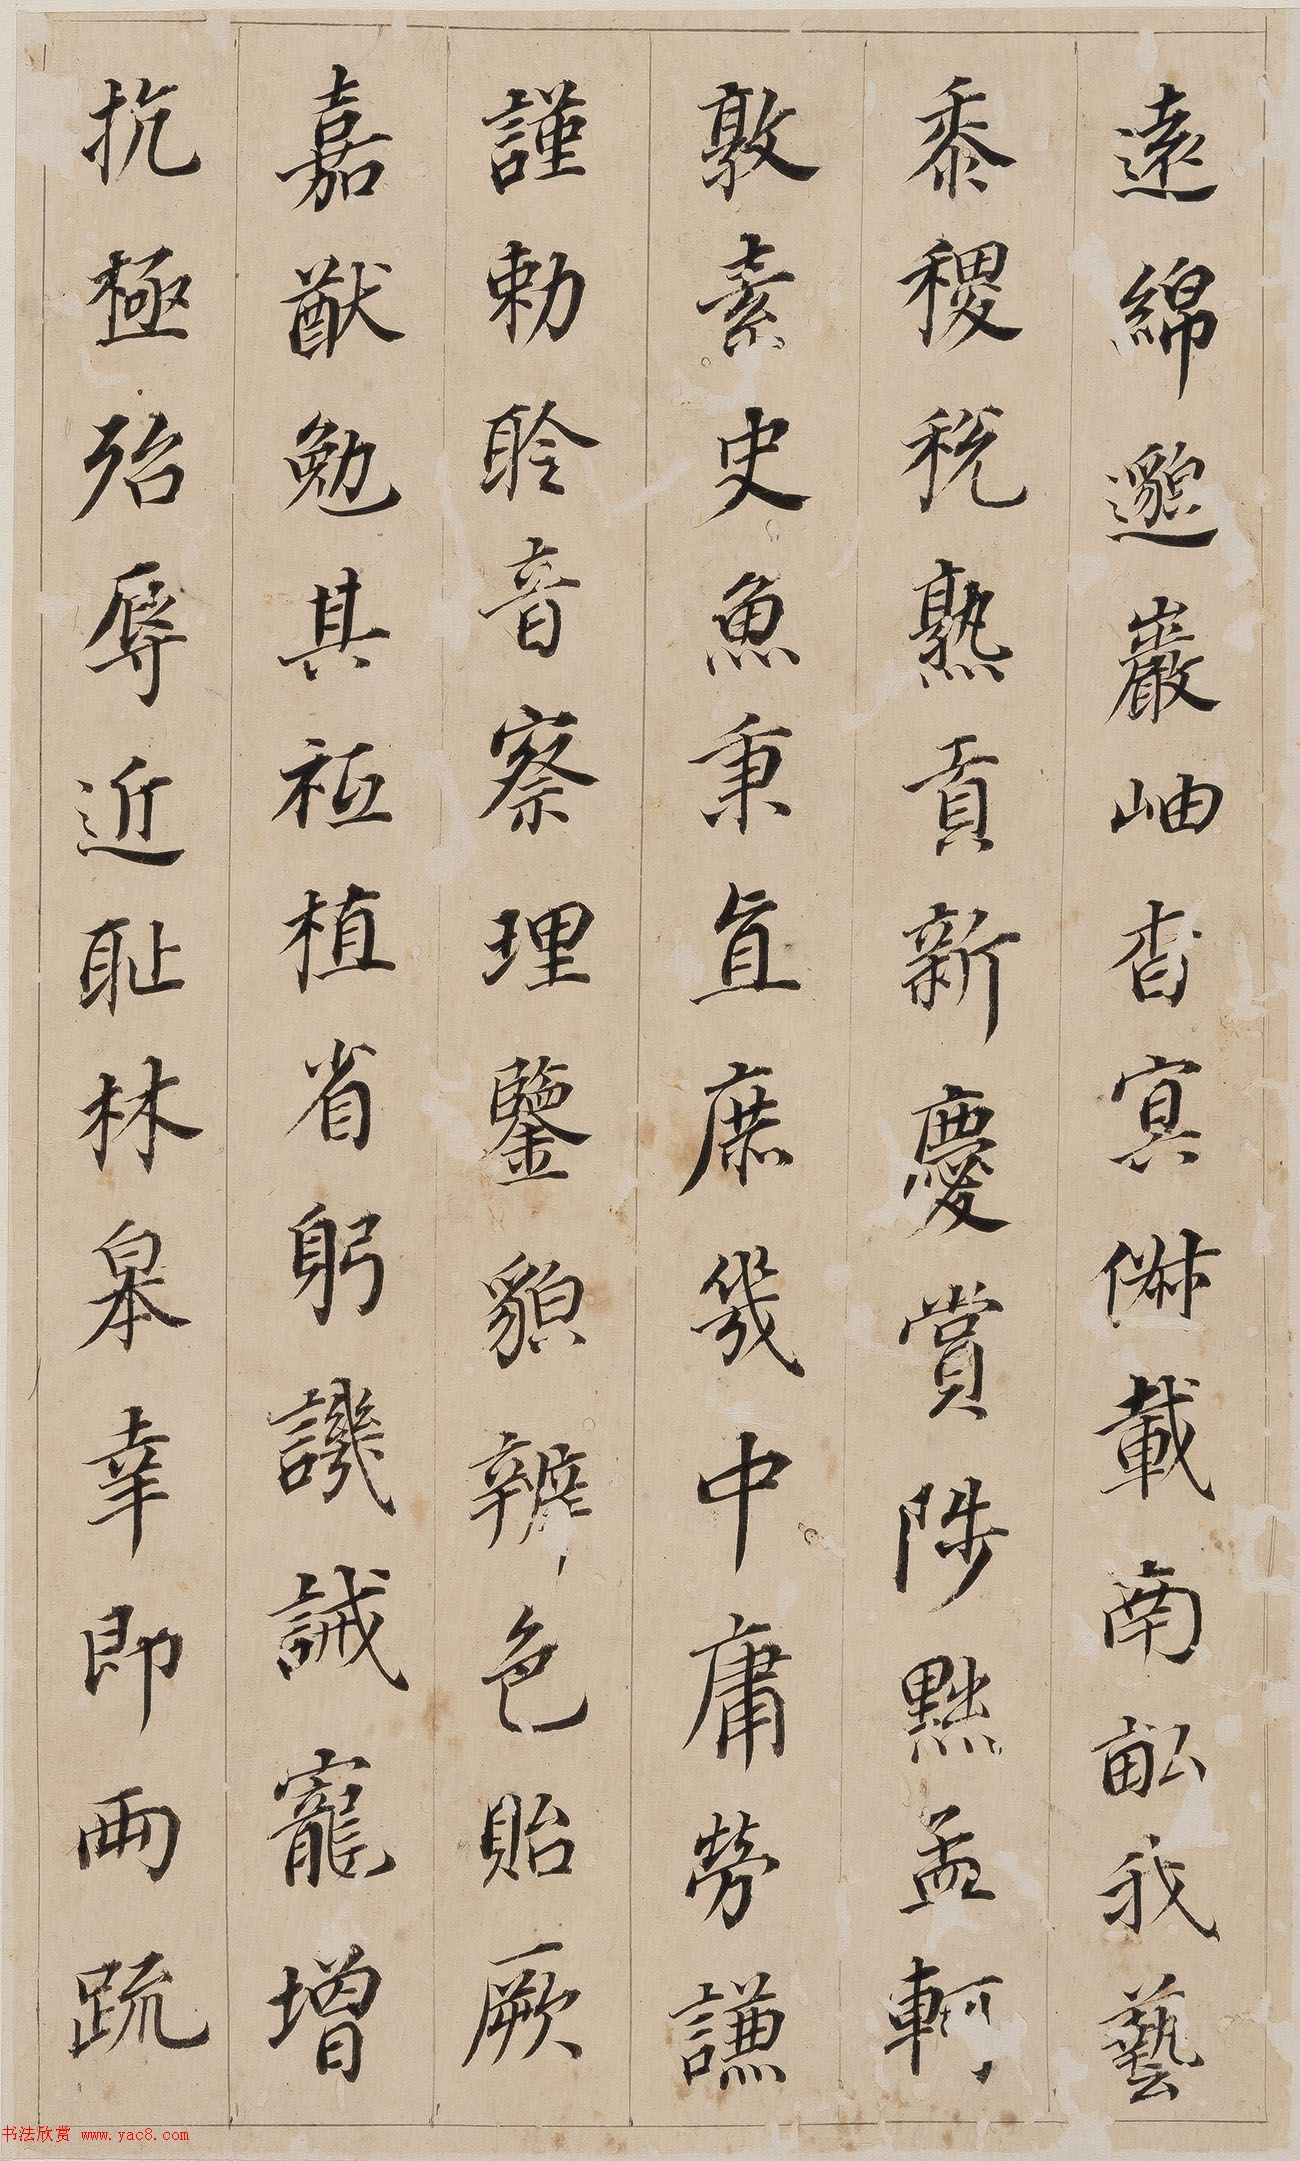 遠綿邈巖岫杳冥俶載南畝我藝
黍稷稅熟貢新慶賞陟黜孟軻
敦素史魚秉直庶幾中庸勞謙
謹勅聆音察理鑒貌辨色貽厥
嘉猷勉其祗植省躬譏誡寵增
抗極殆辱近恥林皋幸即兩疏
书法欣赏 www.yac8.com